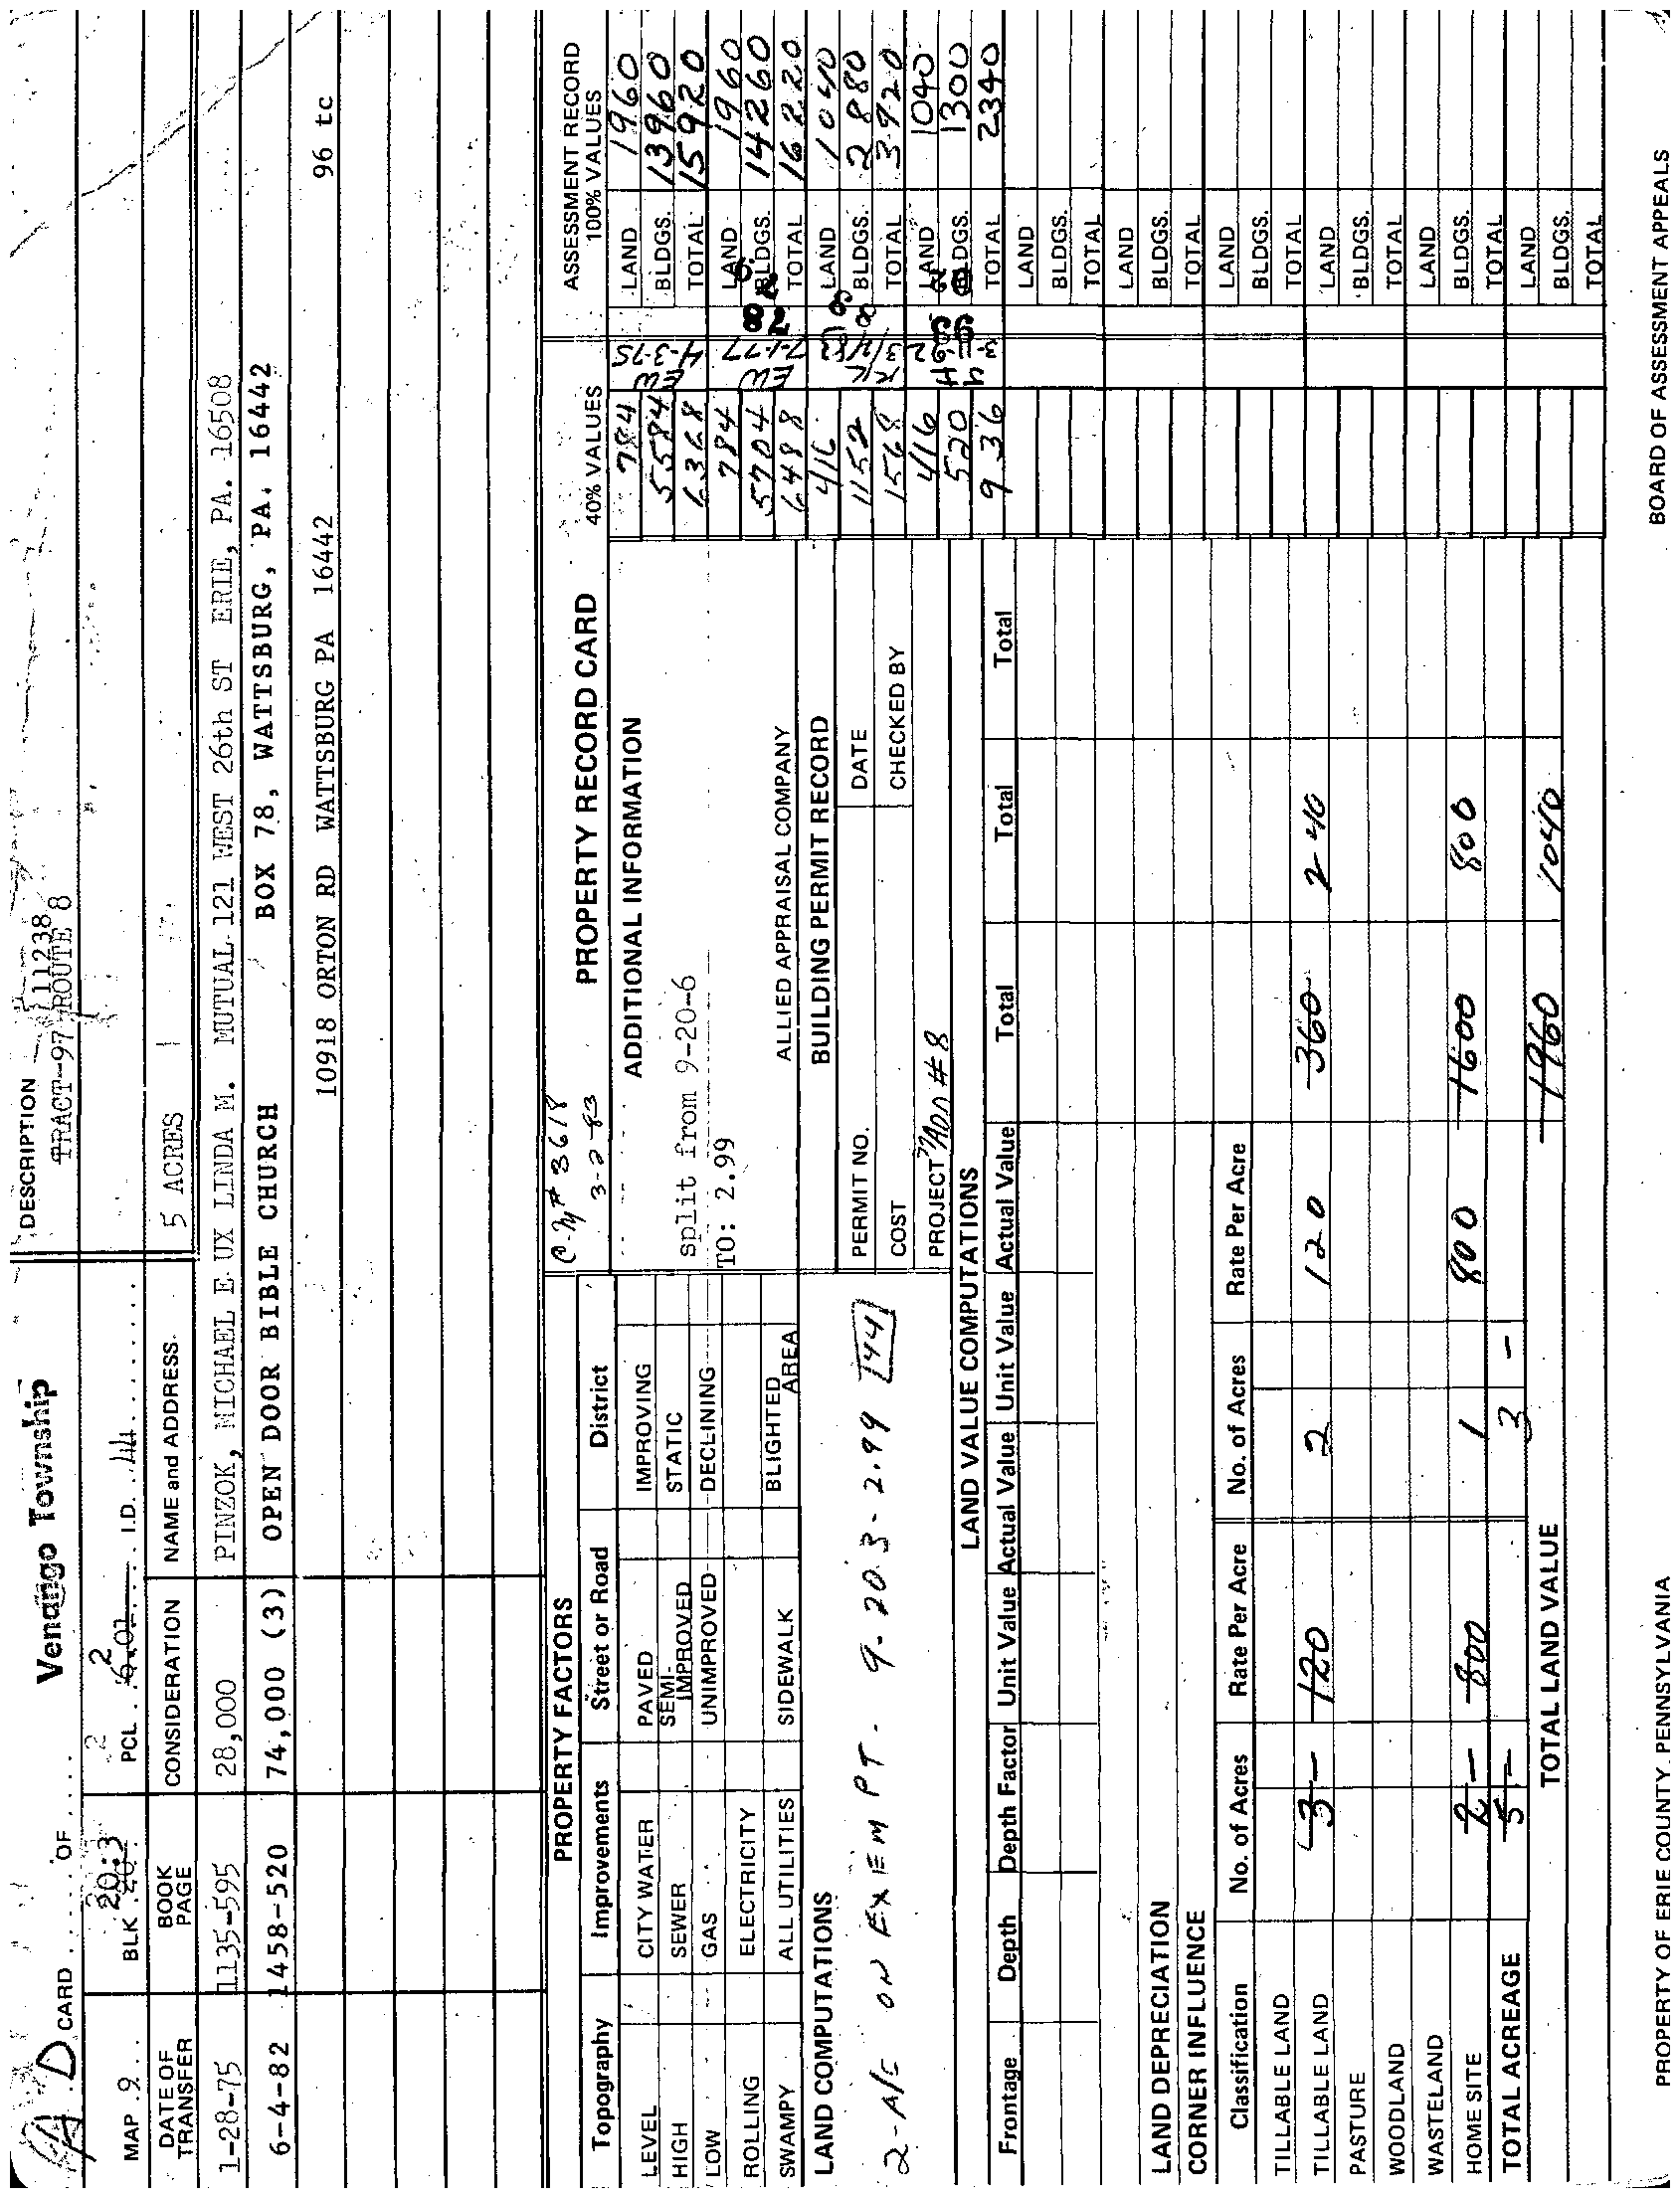 A.D CARD ..... OF .... Venango Township
DESCRIPTION 11238
TRACT-97 ROUTE 8
MAP . 9 . . BLK . 20.3 PCL . 6.02 2 2 I.D. . 44 ........
5 ACRES
DATE OF TRANSFER BOOK PAGE CONSIDERATION NAME and ADDRESS
1-28-75 1135-595 28,000 PINZOK, MICHAEL E UX LINDA M. MUTUAL 121 WEST 26th ST ERIE, PA. 16508
6-4-82 1458-520 74,000 (3) OPEN DOOR BIBLE CHURCH BOX 78, WATTSBURG, PA. 16442
10918 ORTON RD WATTSBURG PA 16442 96 tc
PROPERTY FACTORS
Topography Improvements Street or Road District
LEVEL CITY WATER PAVED IMPROVING
HIGH SEWER SEMI-IMPROVED STATIC
LOW GAS UNIMPROVED DECLINING
ROLLING ELECTRICITY
SWAMPY ALL UTILITIES SIDEWALK BLIGHTED AREA
# 3618
3-2-83
PROPERTY RECORD CARD
ADDITIONAL INFORMATION
split from 9-20-6
TO: 2.99
ALLIED APPRAISAL COMPANY
LAND COMPUTATIONS
2-A/C ON EXEMPT. 9-20.3-2.99 144
BUILDING PERMIT RECORD
PERMIT NO. DATE
COST CHECKED BY
PROJECT # 8
ASSESSMENT RECORD
40% VALUES 100% VALUES
784 LAND 1960
5584 EW 4-3-75 BLDGS. 13960
6368 TOTAL 15920
784 LAND 1960
5704 EW 7-1-77 BLDGS. 14260
6488 TOTAL 16220
416 LAND 1040
1152 BLDGS. 2880
1568 TOTAL 3920
416 LAND 1040
520 BLDGS. 1300
936 TOTAL 2340
LAND
BLDGS.
TOTAL
LAND
BLDGS.
TOTAL
LAND
BLDGS.
TOTAL
LAND
BLDGS.
TOTAL
LAND
BLDGS.
TOTAL
LAND
BLDGS.
TOTAL
LAND VALUE COMPUTATIONS
Frontage Depth Depth Factor Unit Value Actual Value Unit Value Actual Value Total Total Total
LAND DEPRECIATION
CORNER INFLUENCE
Classification No. of Acres Rate Per Acre No. of Acres Rate Per Acre
TILLABLE LAND
TILLABLE LAND 3 - 120 2 120 360 240
PASTURE
WOODLAND
WASTELAND
HOME SITE 2 - 800 1 800 1600 800
TOTAL ACREAGE 5 - 3 -
TOTAL LAND VALUE 1960 1040
PROPERTY OF ERIE COUNTY, PENNSYLVANIA BOARD OF ASSESSMENT APPEALS